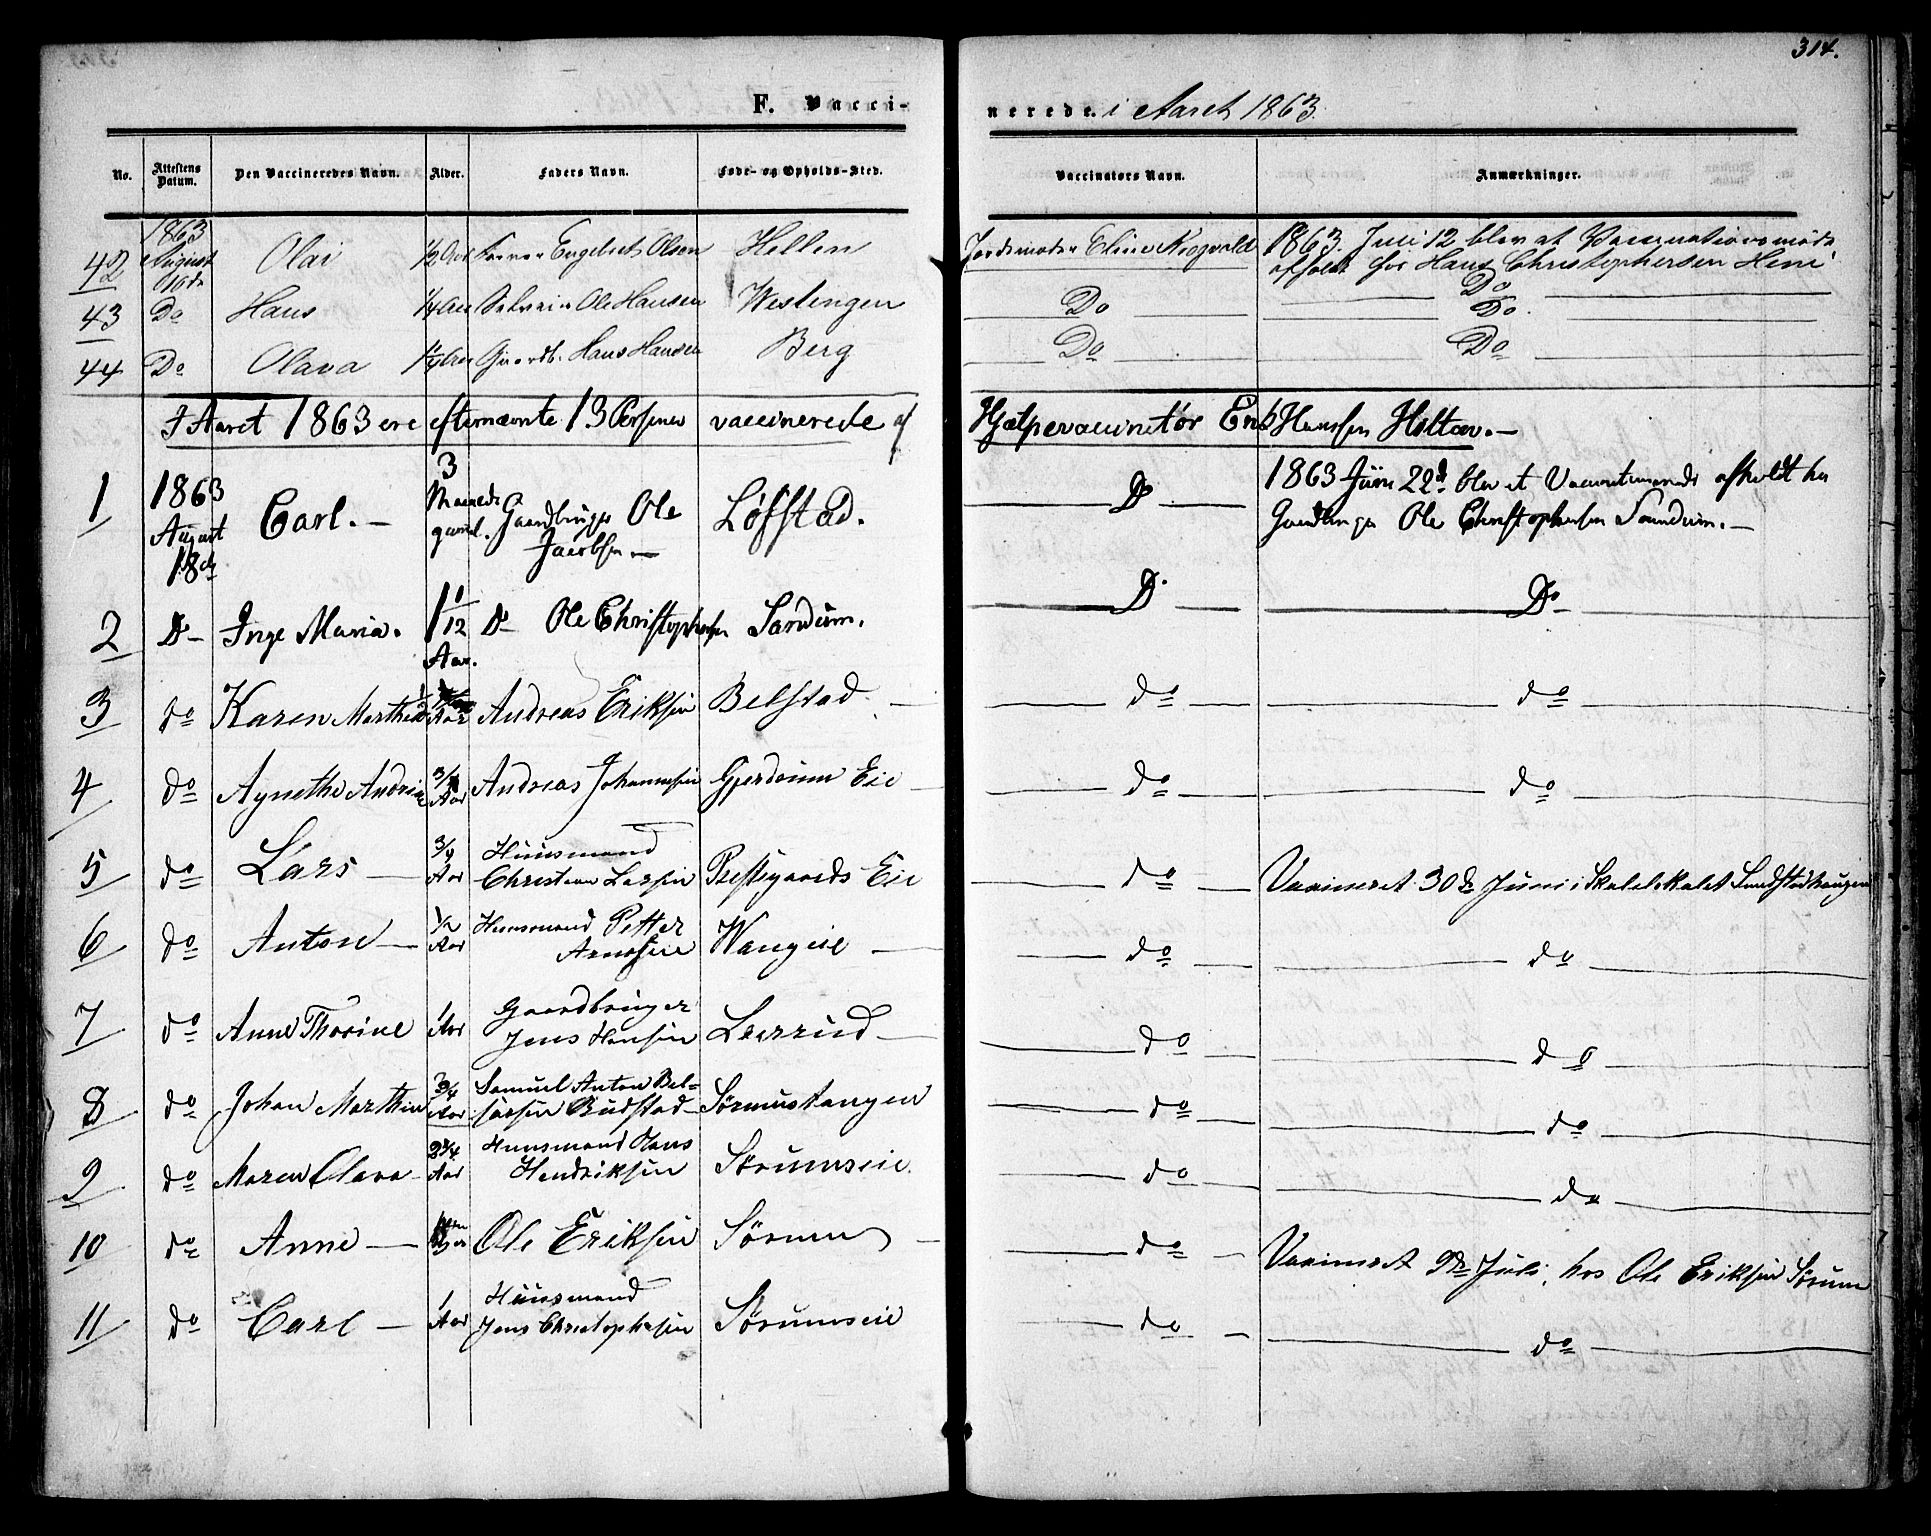 314.
F. Vaccinerede. i Aaret 1863.
No. Attestens Datum. Den Vaccineredes Navn. Alder. Faders Navn. Føde- og Opholds-Sted. Vaccinators Navn. Anmærkninger.
42 1863 August Olai 1/2 Aar Engebret Olsen Hellen Jordemoder Eline 1863. Juli 12 blev et Vaccinationsmøde
afholdt hos Hans Christophersen Heni
43 Do Hans 1/4 Aar Ole Hansen Westengen Do Do Do
44 Do Olava 1/4 Aar Gaardb. Hans Hansen Berg Do Do
I Aaret 1863 ere efternævnte 13 Personer vaccinerede af Hjælpevaccinatør Hanssen Hilton. —
1 1863 August 18de Carl. — 3 Maaneder gammel. Gaardbruger Ole Jacobsen — Løfstad. Do 1863 Juni 22d blev et afholdt hos
Ole Christophersen Sandum. —
2 Do Inge Maria. 1 1/12 Aar. Do Ole Christophersen Sandum. Do Do
3 do Karen Marthea 1/2 Aar Andreas Eriksen Belstad do do
4 do Agnethe Andrine 3/4 Aar Andreas Johannesen Gjerdrum Eie do do
5 do Lars 3/4 Aar Huusmand Christian Larsen Prestegaards Eie do Vaccineret 30de Juni i Skolelokalet
6 do Anton 1/2 Aar Huusmand Petter Arnesen Wangeie do do
7 do Anne Thorine 1 Aar Gaardbruger Jens Hansen Leerrud do do
8 do Johan Marthin 3/4 Aar Samuel Anton Budstad Sørumstangen do do
9 do Maren Olava 2 3/4 Aar Huusmand Hans Hendriksen Sørumseie do do
10 do Anne Ole Eriksen Sørum do Vaccineret 9de Juli, hos Ole Eriksen Sørum
11 do Carl 1 Aar Huusmand Jens Christophersen Sørumseie do do